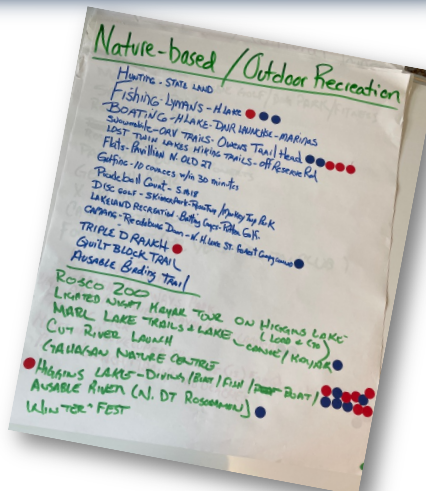 Nature-based / Outdoor Recreation
Hunting - State Land
Fishing - Lymans - H Lake
Boating - H Lake - DNR Launches - Marinas
Snowmobile - ORV Trails - Owens Trail Head
Lost Twin Lakes Hiking Trails - off Reserve Rd
Flats - Pavillion N. Old 27
Golfing - 10 courses w/in 30 minutes
Pickleball Court -
Disc Golf -
Lakeland Recreation - Batting Cages - Golf
Camping - N. H Lake St. Forest Campground
Triple D Ranch
Quilt Block Trail
Ausable Birding Trail
Rosco Zoo
Lighted Night Kayak Tour on Higgins Lake
Marl Lake Trails & Lake - Canoe / Kayak
Cut River Launch
Gahagan Nature Centre
Higgins Lake - Diving / Boat / Fish / Boat /
Ausable River (N. DT Roscommon)
Winter Fest